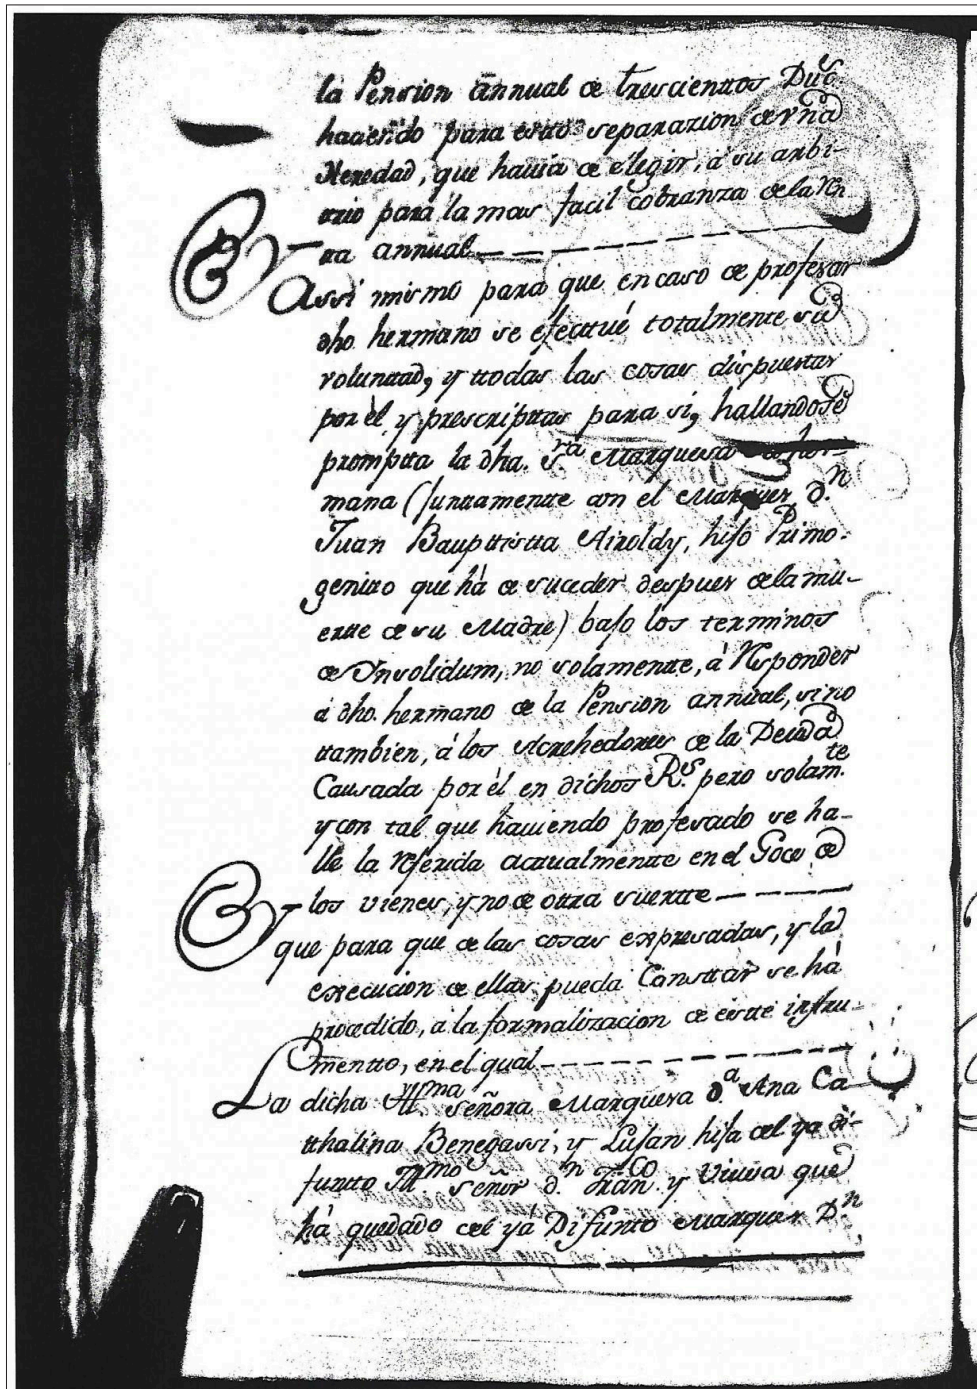 la Pension annual de trescienttos Duc.s
haciendo para estto separazion de vna
Heredad, que hauia de elegir, à su arbi-
trio para la mas facil cobranza de la Rn
ta annual
Y Assi mismo para que en caso de profesar
dho. hermano se efecttué totalmente su
voluntad, y ttodas las cosas dispuesttas
por èl, y prescripttas para si, hallandose
prompta la dha. S.ra Marquesa su her-
mana (Junttamentte con el Marques D.n
Juan Bauptistta Airoldy, hijo Primo-
genitto que hà de suceder despues de la mu-
ertte de su Madre) bajo los terminos
de Insolidum, no solamentte, à Responder
à dho. hermano de la Pension annual, sino
ttambien, à los Acrehedores de la Deuda
Causada por èl en dichos R.s pero solam.te
y con tal que hauiendo profesado se ha-
lle la referida acttualmentte en el Goce de
los vienes, y no de ottra suertte
Y que para que de las cosas expresadas, y la
execucion de ellas pueda Consttàr se hà
procedido, à la formalizacion de estte instru-
mentto, en el qual
La dicha Ill.ma Señora Marquesa D.a Ana Ca-
tthalina Benegassi, y Lujan hija del ya di-
funtto Ill.mo Señor D.n Fran.co y Viuda que
hà quedado del yà Difunto Marques D.n